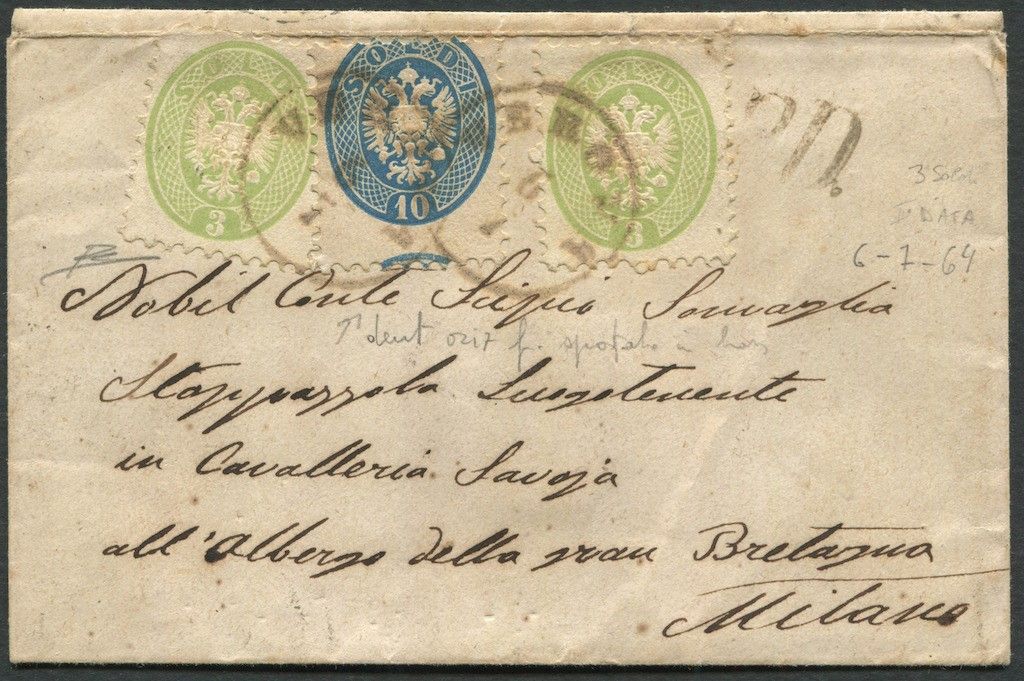 SOLDI 3
SOLDI 10
SOLDI 3
P.D.
3 SOLDI
I° DATA
6-7-64
Nobil Conte Scipio Somaglia
dent
Stoppazzola Luogotenente
in Cavalleria Savoja
all'Albergo della gran Bretagna
Milano